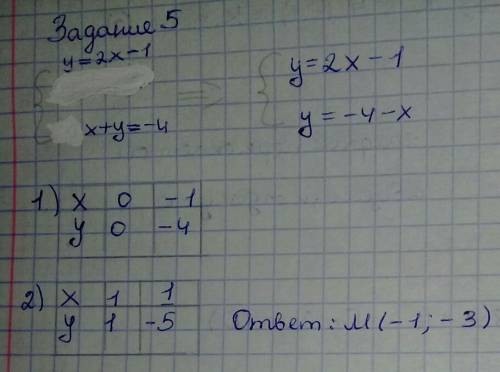 Задание 5
y=2x-1
x+y=-4
=> y=2x-1
y=-4-x
1) x 0 -1
y 0 -4
2) x 1 1
y 1 -5
Ответ: M(-1; -3)